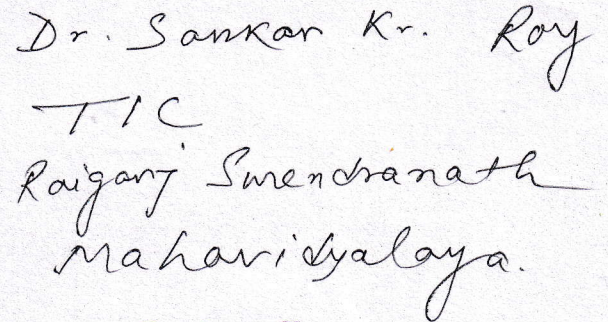 Dr. Sankar Kr. Roy
TIC
Raiganj Surendranath
Mahavidyalaya.